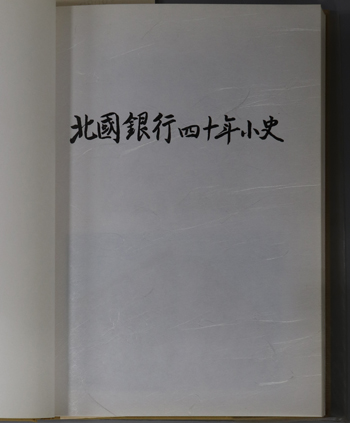 北國銀行四十年小史